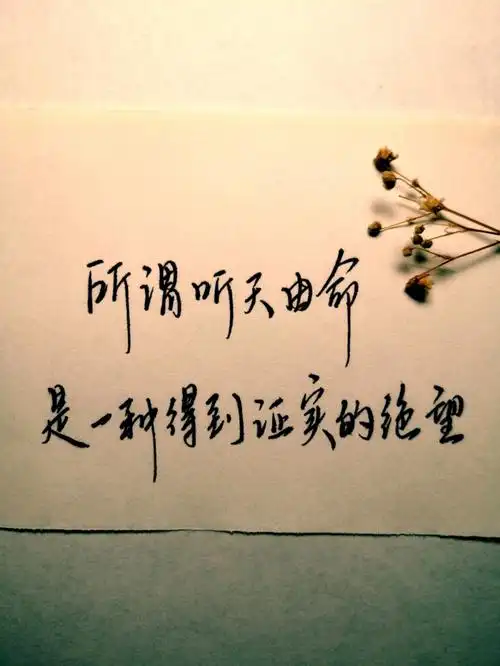 所谓听天由命
是一种得到证实的绝望